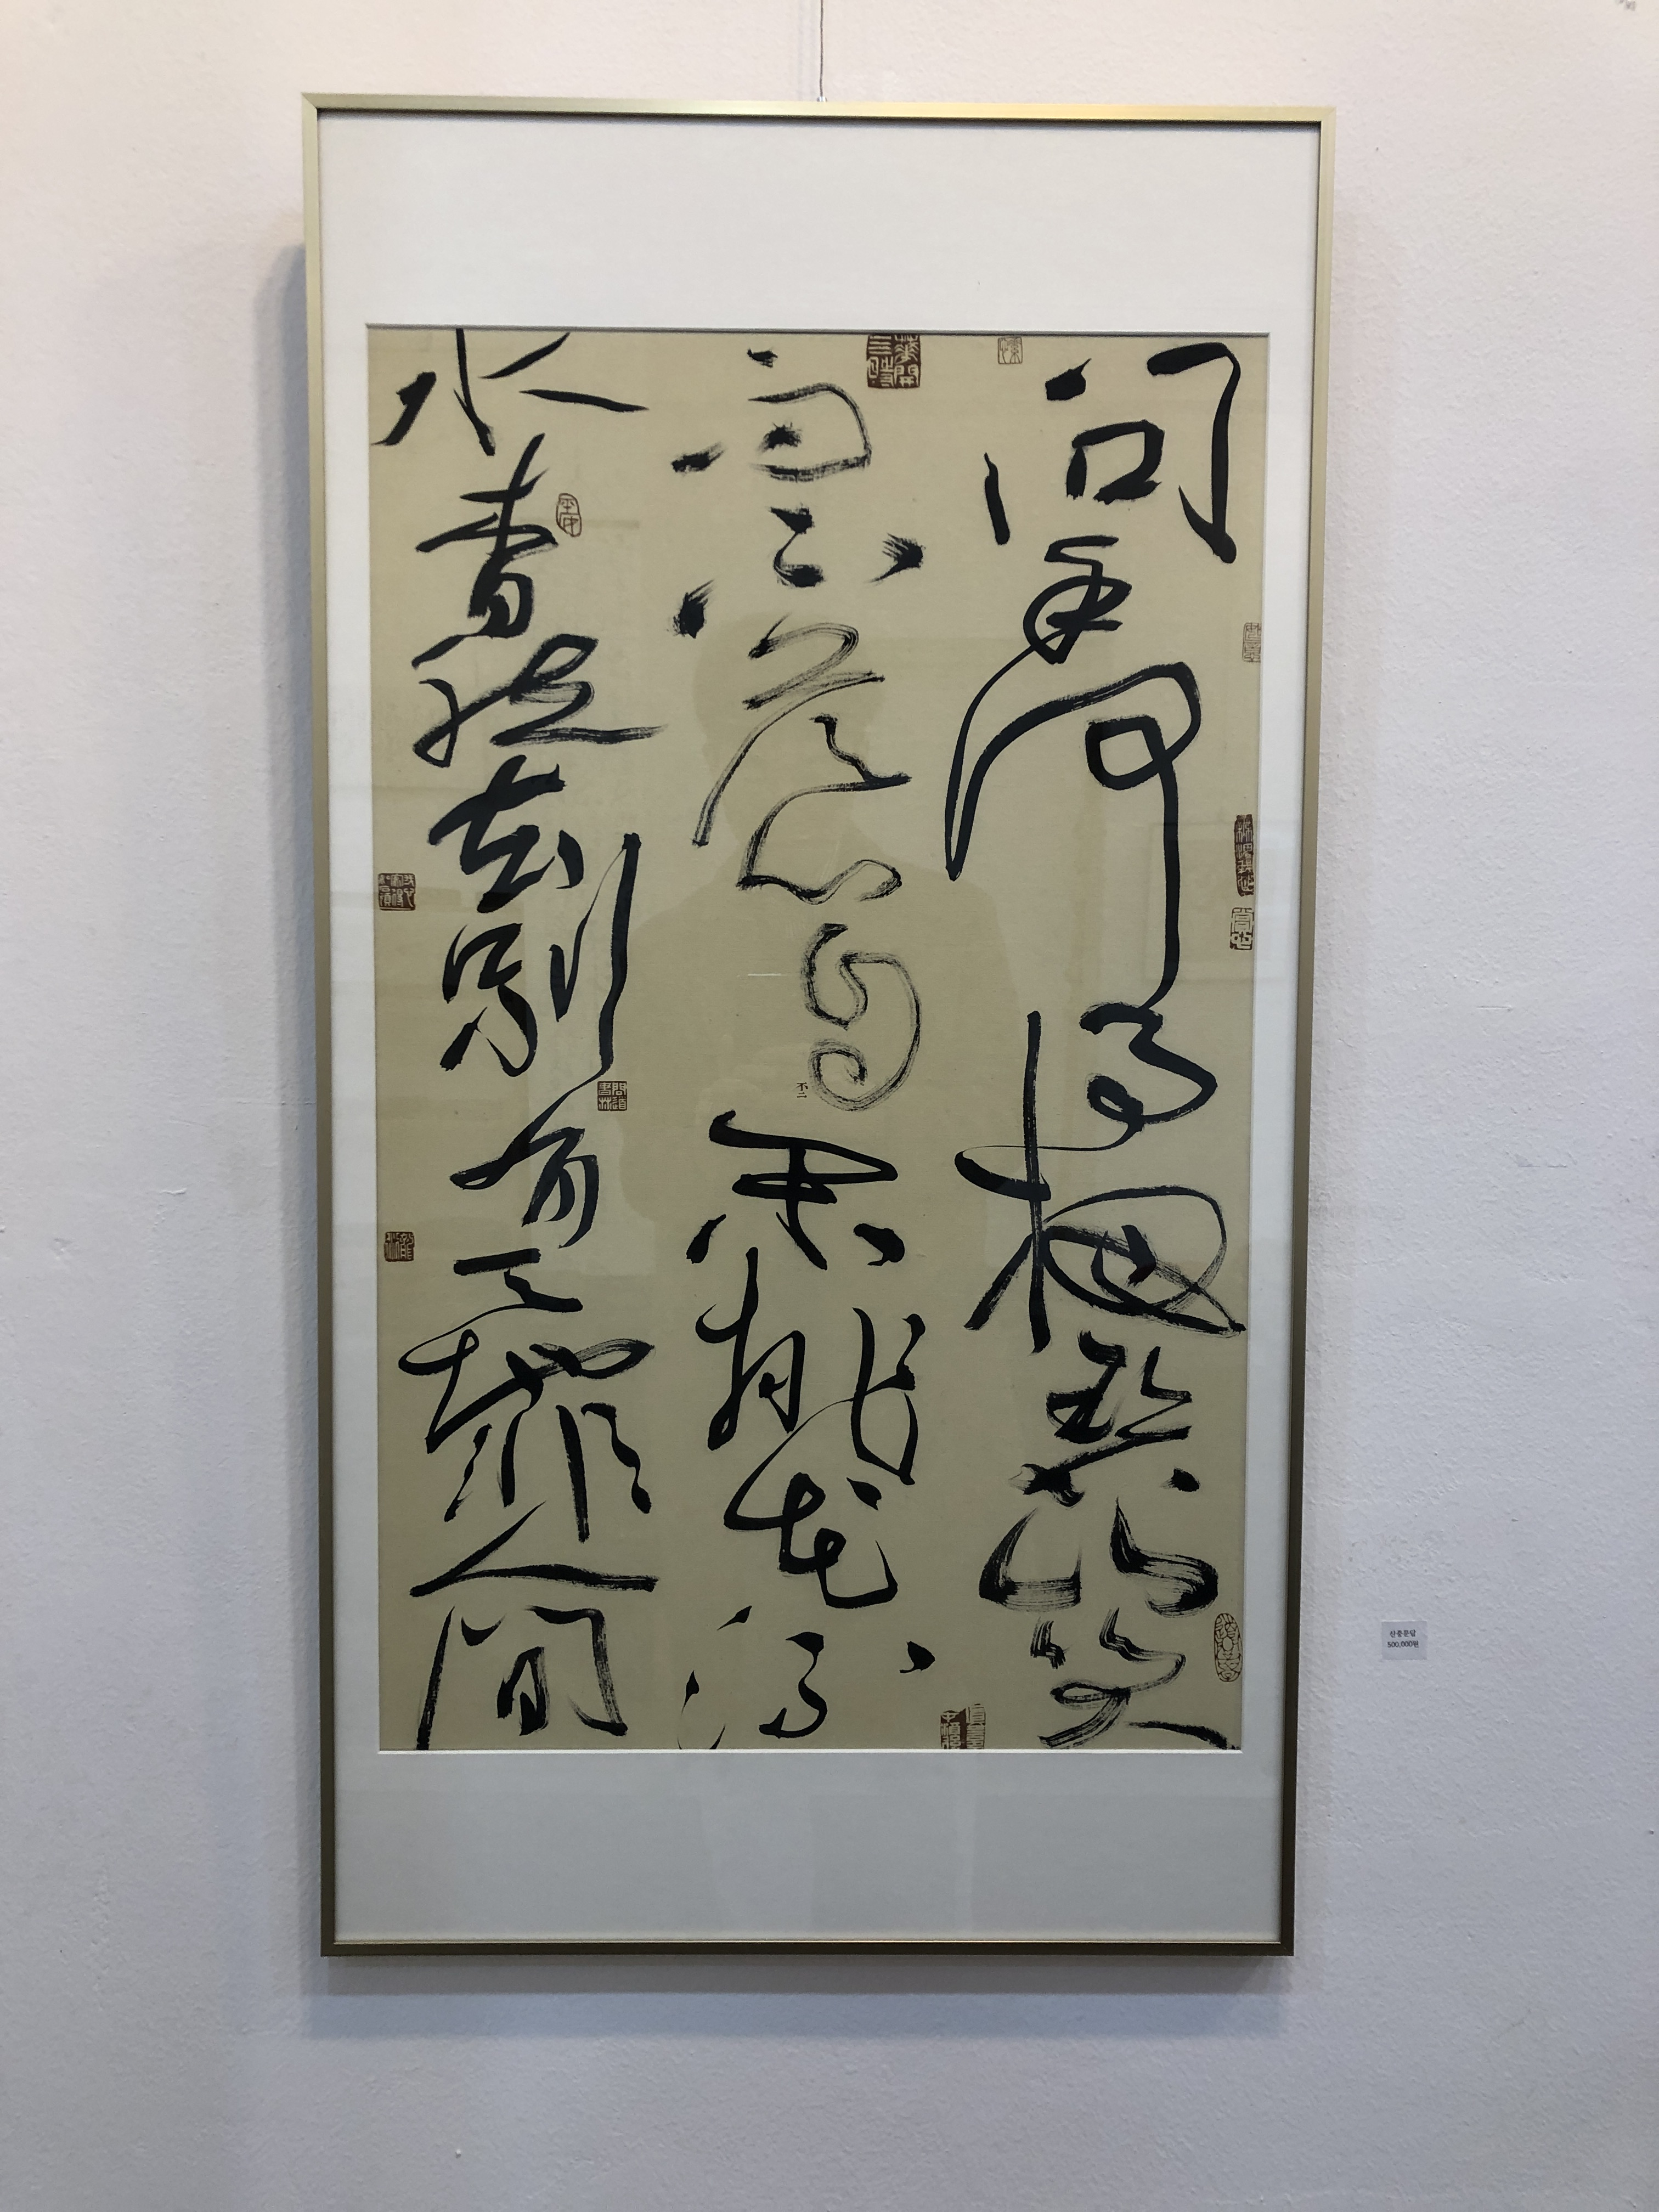 問余何事栖碧山笑
而不答心自閑桃花流
水杳然去別有天地非人間
不二
산중문답
500,000원